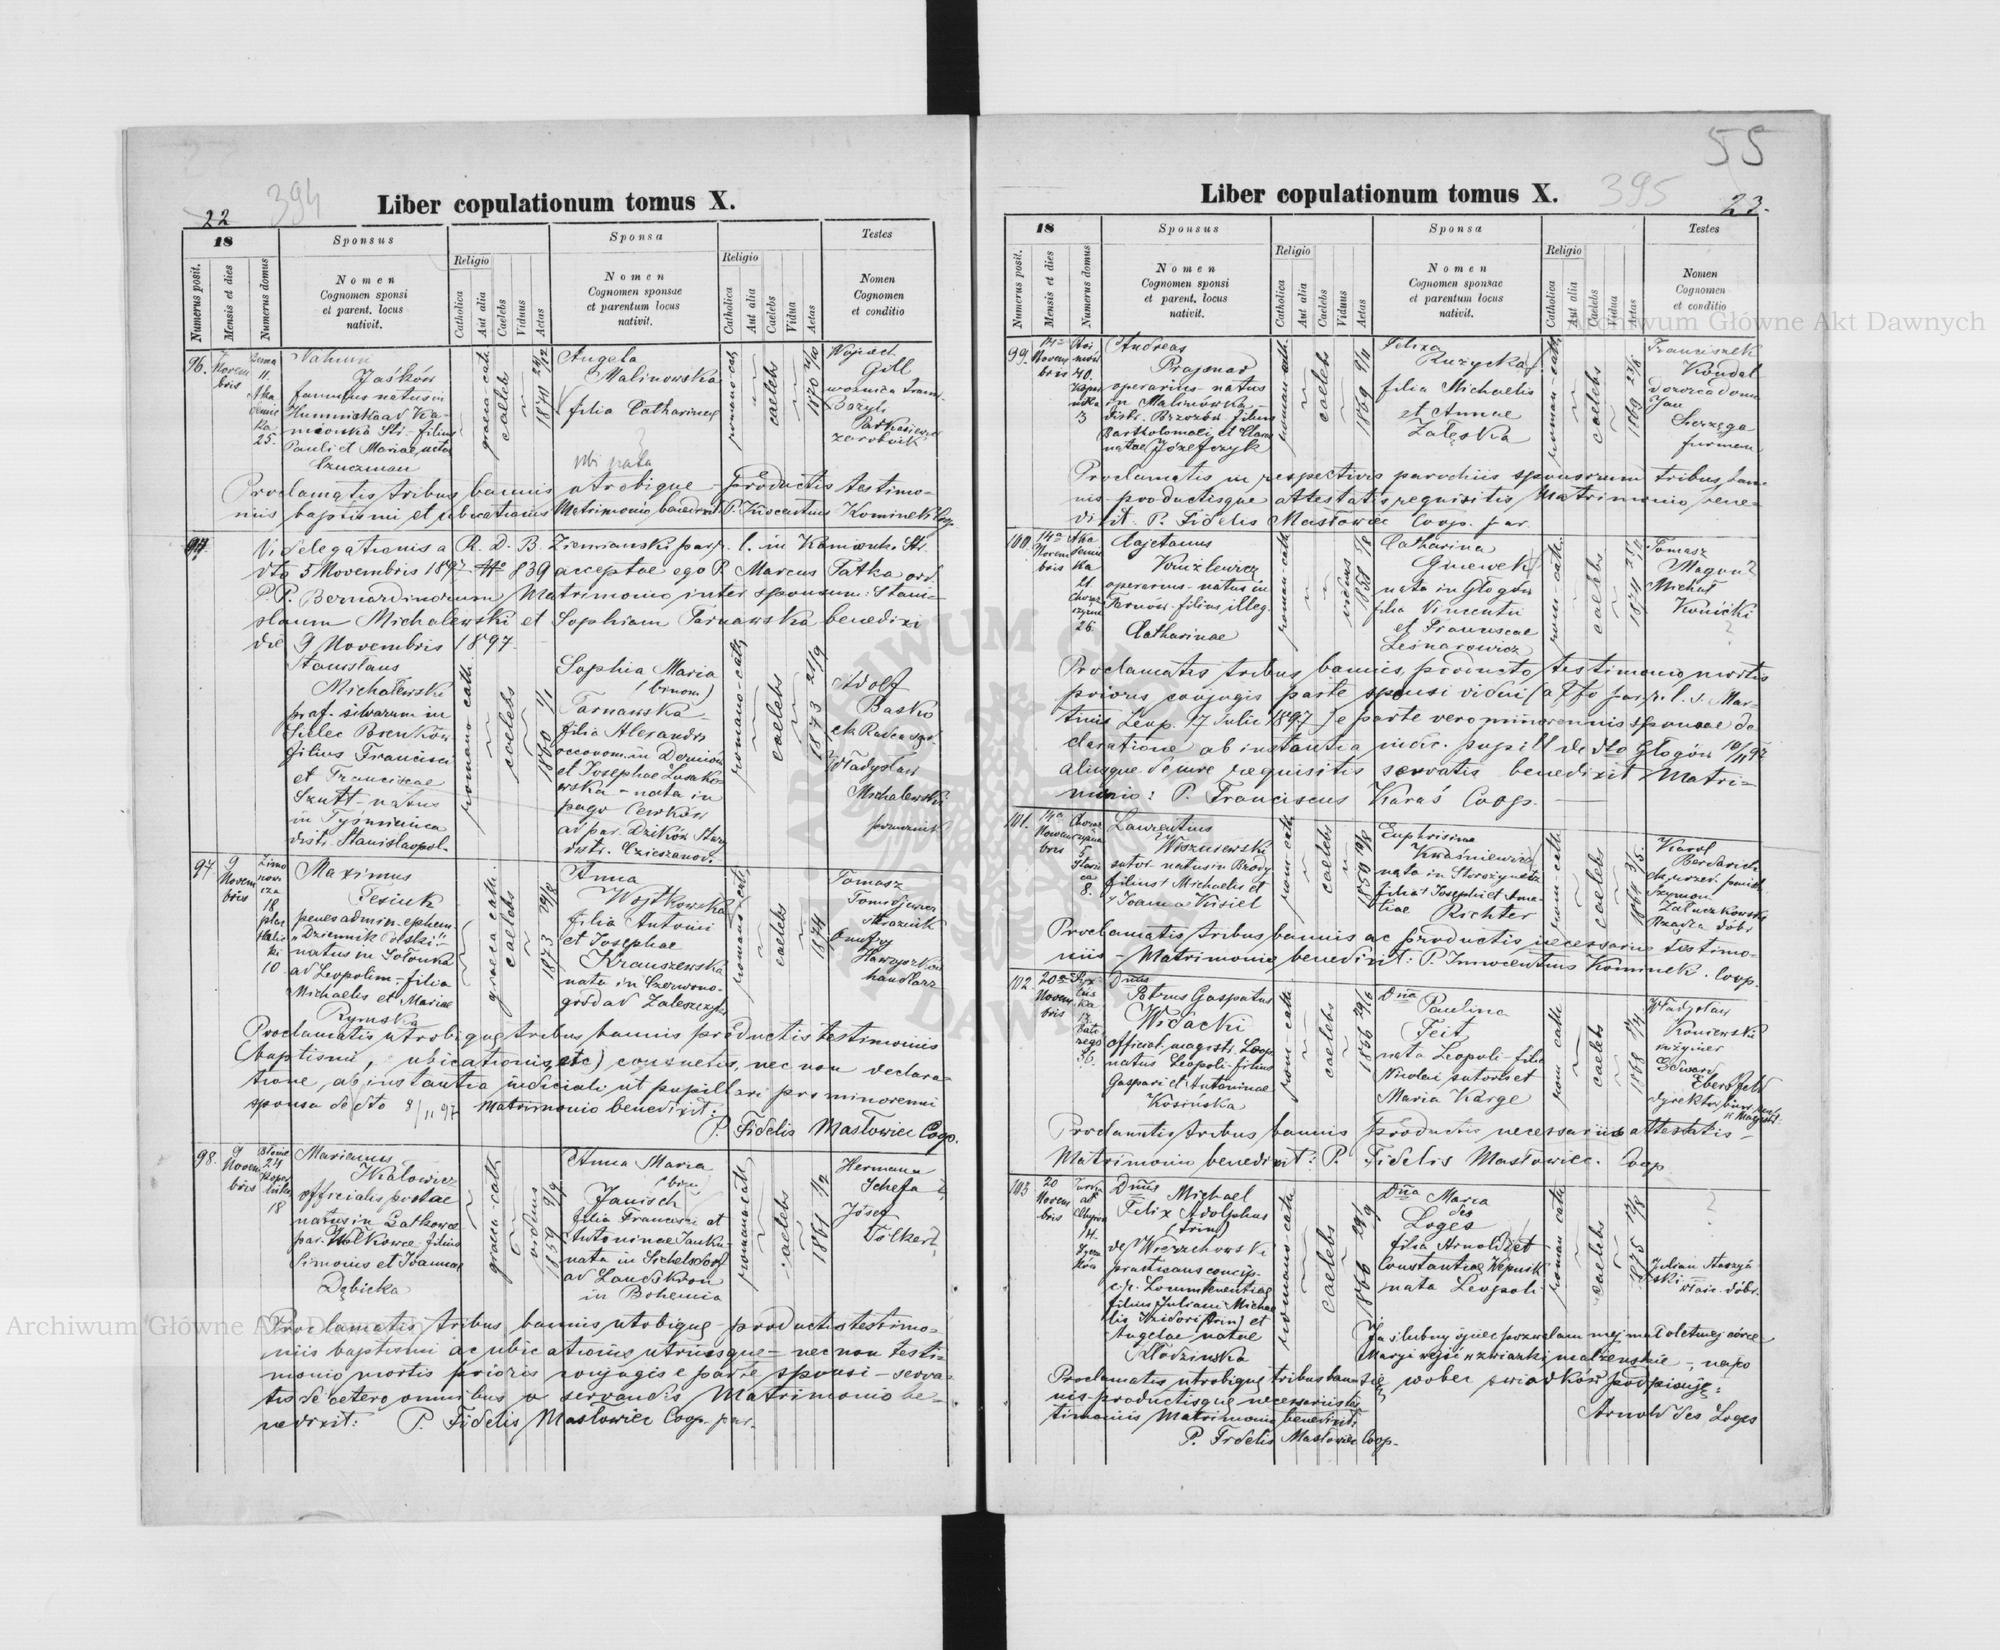 22
394
Liber copulationum tomus X.
18
Sponsus
Sponsa
Testes
Numerus posit.
Mensis et dies
Numerus domus
Nomen
Cognomen sponsi
et parent. locus
nativit.
Religio
Catholica
Aut alia
Caelebs
Viduus
Aetas
Nomen
Cognomen sponsae
et parentum locus
nativit.
Religio
Catholica
Aut alia
Caelebs
Vidua
Aetas
Nomen
Cognomen
et conditio
96.
7
Novem
bris
11
25.
Jaśków
famulus natus in
filius
Pauli et Mariae
graeco cath.
caelebs
Angela
Malinowska
filia Catharinae
ubi nata
romano-cath.
caelebs
1870
Wojciech
Gill
woźnica tram.
Bazyli
zarobnik
Proclamatis tribus bannis utrobique - productis testimo-
niis baptismi et ubicationis Matrimonio benedixit P. Inocentius Kominek Coop.
97.
Vi delegationis a R. D. B. Ziemianski par. l. in Kamionka Str.
dto 5 Novembris 1897 No 839 acceptae ego P. Marcus Fatka ord.
P.P. Bernardinorum Matrimonio inter sponsum: Stani-
slaum Michalewski et Sophiam Tarnawska benedixi
die 9 Novembris 1897
Stanislaus
Michalewski
praef. silvarum in
Sielec Bieńków
filius Francisci
et Franciscae
Szutt - natus
in Tyśmienica
distr. Stanislaopol.
romano cath.
caelebs
1860 1/1
Sophia Maria
(binom)
Tarnawska
filia Alexandri
oeconom. in Derniów
et Josephae Łusako
wska - nata in
pago Cewków
ad par. Dzików Stary
distr. Cieszanów.
romano-cath.
caelebs
1873 21/9
Adolf
Basko
Władysław
Michalewski
porucznik
97.
9
Novem
bris
18
10
Maximus
Fesiuk
penes admin. ephem.
"Dziennik Polski"
natus in Sołonka
ad Leopolim - filius
Michaelis et Mariae
Rymska
graeco cath.
caelebs
1873 29/8
Anna
Wojtkowska
filia Antonii
et Josephae
Krauszewska
nata in Czerwono-
gród ad Zaleszczyki
romano cath.
caelebs
1874
Tomasz
Tomidjewicz
strażnik
Onufry
handlarz
Proclamatis utrobique tribus bannis productis testimoniis
(baptismi, ubicationis, etc) consuetis, nec non declara-
tione ab instantia judiciali ut pupillari pro minorenni
sponsa de dto 8/11 97 Matrimonio benedixit:
P. Fidelis Masłowiec Coop.
98.
9
Novem
bris
24
18
Marianus
Kalowicz
officialis postae
natus in Zatkowce
par. Wołkowce filius
Simonis et Joannae
Dębicka
graeco-cath.
viduus
1859 9/9
Anna Maria
(bin)
Janisch
filia Francisci et
Antoninae Janku
nata in Sichelsdorf
ad Landskron
in Bohemia
romano cath.
caelebs
1861 1/2
Hermann
Schefa
Józef
Fölkert
Proclamatis tribus bannis utrobique - productis testimo-
niis baptismi ac ubicationis utriusque - nec non testi-
monio mortis prioris conjugis e parte sponsi - serva-
tis de cetero omnibus servandis Matrimonio be-
nedixit: P. Fidelis Masłowiec Coop. par.
55
Liber copulationum tomus X.
395
23.
18
Sponsus
Sponsa
Testes
Numerus posit.
Mensis et dies
Numerus domus
Nomen
Cognomen sponsi
et parent. locus
nativit.
Religio
Catholica
Aut alia
Caelebs
Viduus
Aetas
Nomen
Cognomen sponsae
et parentum locus
nativit.
Religio
Catholica
Aut alia
Caelebs
Vidua
Aetas
Nomen
Cognomen
et conditio
99.
14a
Novem
bris
40
3
Andreas
Prajsnar
operarius - natus
in Malinówka
distr. Brzozów filius
Bartholomaei et Clarae
natae Józefczyk
roman-cath.
caelebs
1869 9/11
Felixa
Rużycka
filia Michaelis
et Annae
Załęska
roman-cath.
caelebs
1869
Franciszek
Kondal
dozorca domu
Jan
furman
Proclamatis in respectivis parochiis sponsorum tribus ban-
nis productisque attestatis requisitis Matrimonio bene-
dixit P. Fidelis Masłowiec Coop. par.
100.
14a
Novem
bris
Aka
demic
ka
21
26
Cajetanus
Kniżlewicz
operarius - natus in
Tarnów - filius illeg.
Catharinae
roman-cath.
viduus
1858
Catharina
Gniewek
nata in Głogów
filia Vincentii
et Franciscae
Leśnarowicz
rom-cath.
caelebs
1874
Tomasz
Magoń?
Michał
Konicki
?
Proclamatis tribus bannis, producto testimonio mortis
prioris conjugis parte sponsi vidui (a par. l. S. Mar-
tini Leop. 17 Julii 1897) e parte vero minorennis sponsae de-
claratione ab instantia judic. pupill de dto Głogów 10/11 97
aliisque de jure requisitis servatis benedixit Matri-
monio: P. Franciscus Karaś Coop.
101.
14a
Novem
bris
5
8.
Laurentius
Wiszniewski
sutor natus in Brody
filius Michaelis et
Joanna Kisiel
rom-cath.
caelebs
1850 10/8
Euphrisina
Kwaśniewicz
nata in Storożynetz
filia Josephi et Ama-
liae Richter
rom-cath.
caelebs
1864 3/5.
Karol
Szymon
Załuczkowski
Rządca dóbr
Proclamatis tribus bannis ac productis necessariis testimo-
niis - Matrimonio benedixit: P. Innocentius Kominek. Coop.
102.
20a
Novem
bris
36.
Dnus
Petrus Gasparus
Widacki
official. magistr. Leop.
natus Leopoli - filius
Gaspari et Antoninae
Kosińska
rom-cath.
caelebs
1866 29/6
Dna
Paulina
Feit
nata Leopoli - filia
Nicolai sutoris et
Maria Karge
rom cath
caelebs
1868
Władysław
Koniewski
inżynier
Edward
Ebersfeld
dyrektor
Proclamatis tribus bannis productis necessariis attestatis -
Matrimonio benedixit: P. Fidelis Masłowiec. Coop
103
20
Novem
bris
14.
Dnus
Michael
Felix Adolphus
(trin)
de Wierzchowski
practicans concip.
c.r. Locumtenentiae
filius Juliani Michae
lis Izidori (trin) et
Angelae natae
Kłodzinska
romano-cath
caelebs
1866 29/9
Dna Maria
des
Loges
filia Arnoldi et
Constantiae Kepnik
nata Leopoli
roman cath
caelebs
1875 15/8
?
Julian
właśc. dóbr.
Ja ślubny ojciec pozwalam mej małoletniej córce
Maryi wejść w związki małżeńskie, na co
się wobec świadków podpisuję:
Arnold des Loges
Proclamatis utrobique tribus bannis
productisque necessariis tes-
timoniis Matrimonio benedixit:
P. Fidelis Masłowiec Coop.
Archiwum Główne Akt Dawnych
Archiwum Główne Akt Dawnych